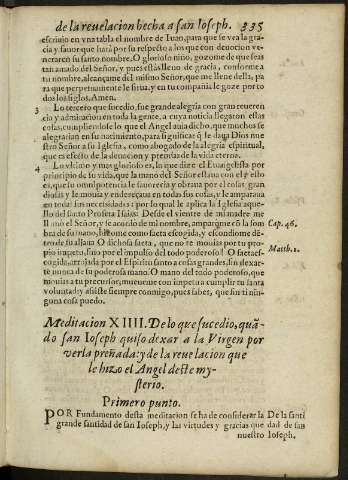 de la reuelacion hecha a san Ioseph. 335
escriuio en vna tabla el nombre de Iuan, para que se vea la gra-
cia y fauor que hara por su respecto a los que con deuocion ve-
neraren su santo nombre. O glorioso nino, gozome de que seas
tan amado del Señor, y pues estás lleno de gracia, conforme a
tu nombre, alcançame del mismo Señor, que me llene della, pa
ra que perpetuamente le sirua, y en tu compañia le goze por to
dos los siglos. Amen.
3 Lo tercero que sucedio, fue grande alegria con gran reueren
cia y admiracion en toda la gente, a cuya noticia llegaron estas
cosas, cumpliendose lo que el Angel auia dicho, que muchos se
alegrarian en su nacimiento, para significar q̃ le daua Dios nue
stro Señor a su Iglesia, como abogado de la alegria espiritual,
que es efecto de la deuocion y prendas de la vida eterna.
4 Lo vltimo y mas glorioso es, lo que dize el Euangelista por
principio de su vida, que la mano del Señor estaua con el: esto
es, que su omnipotencia le fauorecia y obraua por el cosas gran
diosas y le mouia y endereçaua en todas sus cosas, y le amparaua
en todas sus necessidades: por lo qual le aplica la Iglesia aque-
llo del santo Profeta Isaias: Desde el vientre de mi madre me
llamó el Señor, y se acordò de mi nombre, amparòme cõ la som Cap. 46.
bra de su mano, hizome como saeta escogida, y escondiome dẽ-
tro de su aljaua O dichosa saeta, que no te mouias por tu pro- Matth. 1.
pio impetu, sino por el impulso del todo poderoso! O saeta es-
cogida, tirada por el Espiritu santo a cosas grandes, sin alexar-
te nunca de su poderosa mano. O mano del todo poderoso, que
mouias a tu precursor, mueueme con impetu a cumplir tu santa
voluntad, y assiste siempre conmigo, pues sabes, que sin ti nin-
guna cosa puedo.
Meditacion XIIII. De lo que sucedio, quã-
do san Ioseph quiso dexar a la Virgen por
verla preñada: y de la reuelacion que
le hizo el Angel deste my-
sterio.
Primero punto.
POR Fundamento desta meditacion se ha de considerar la De la santi
grande santidad de san Ioseph, y las virtudes y gracias que dad de san
nuestro Ioseph.